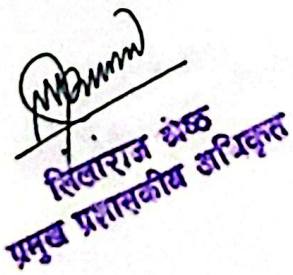 सिलाराज श्रेष्ठ
प्रमुख प्रशासकीय अधिकृत